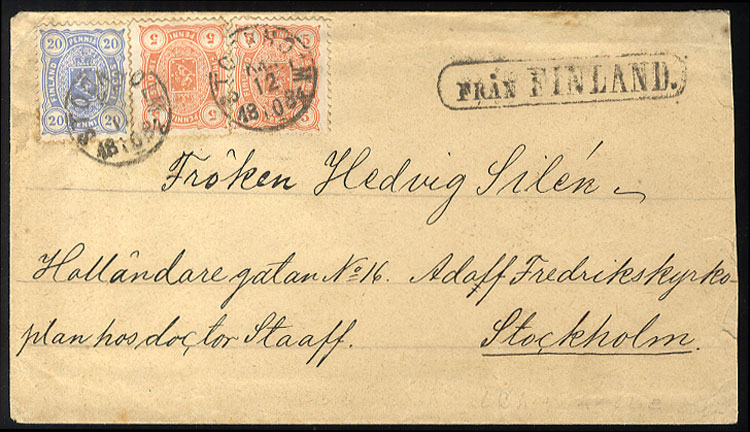 20 PENNIA 20
FINLAND
20 20
5 5
PENNIÄ
5
STOCKHOLM
KK
12
18 10 8
FRÅN FINLAND.
Fröken Hedvig Silén
Holländaregatan No 16. Adolf Fredrikskyrko-
plan hos doctor Staaff. Stockholm.